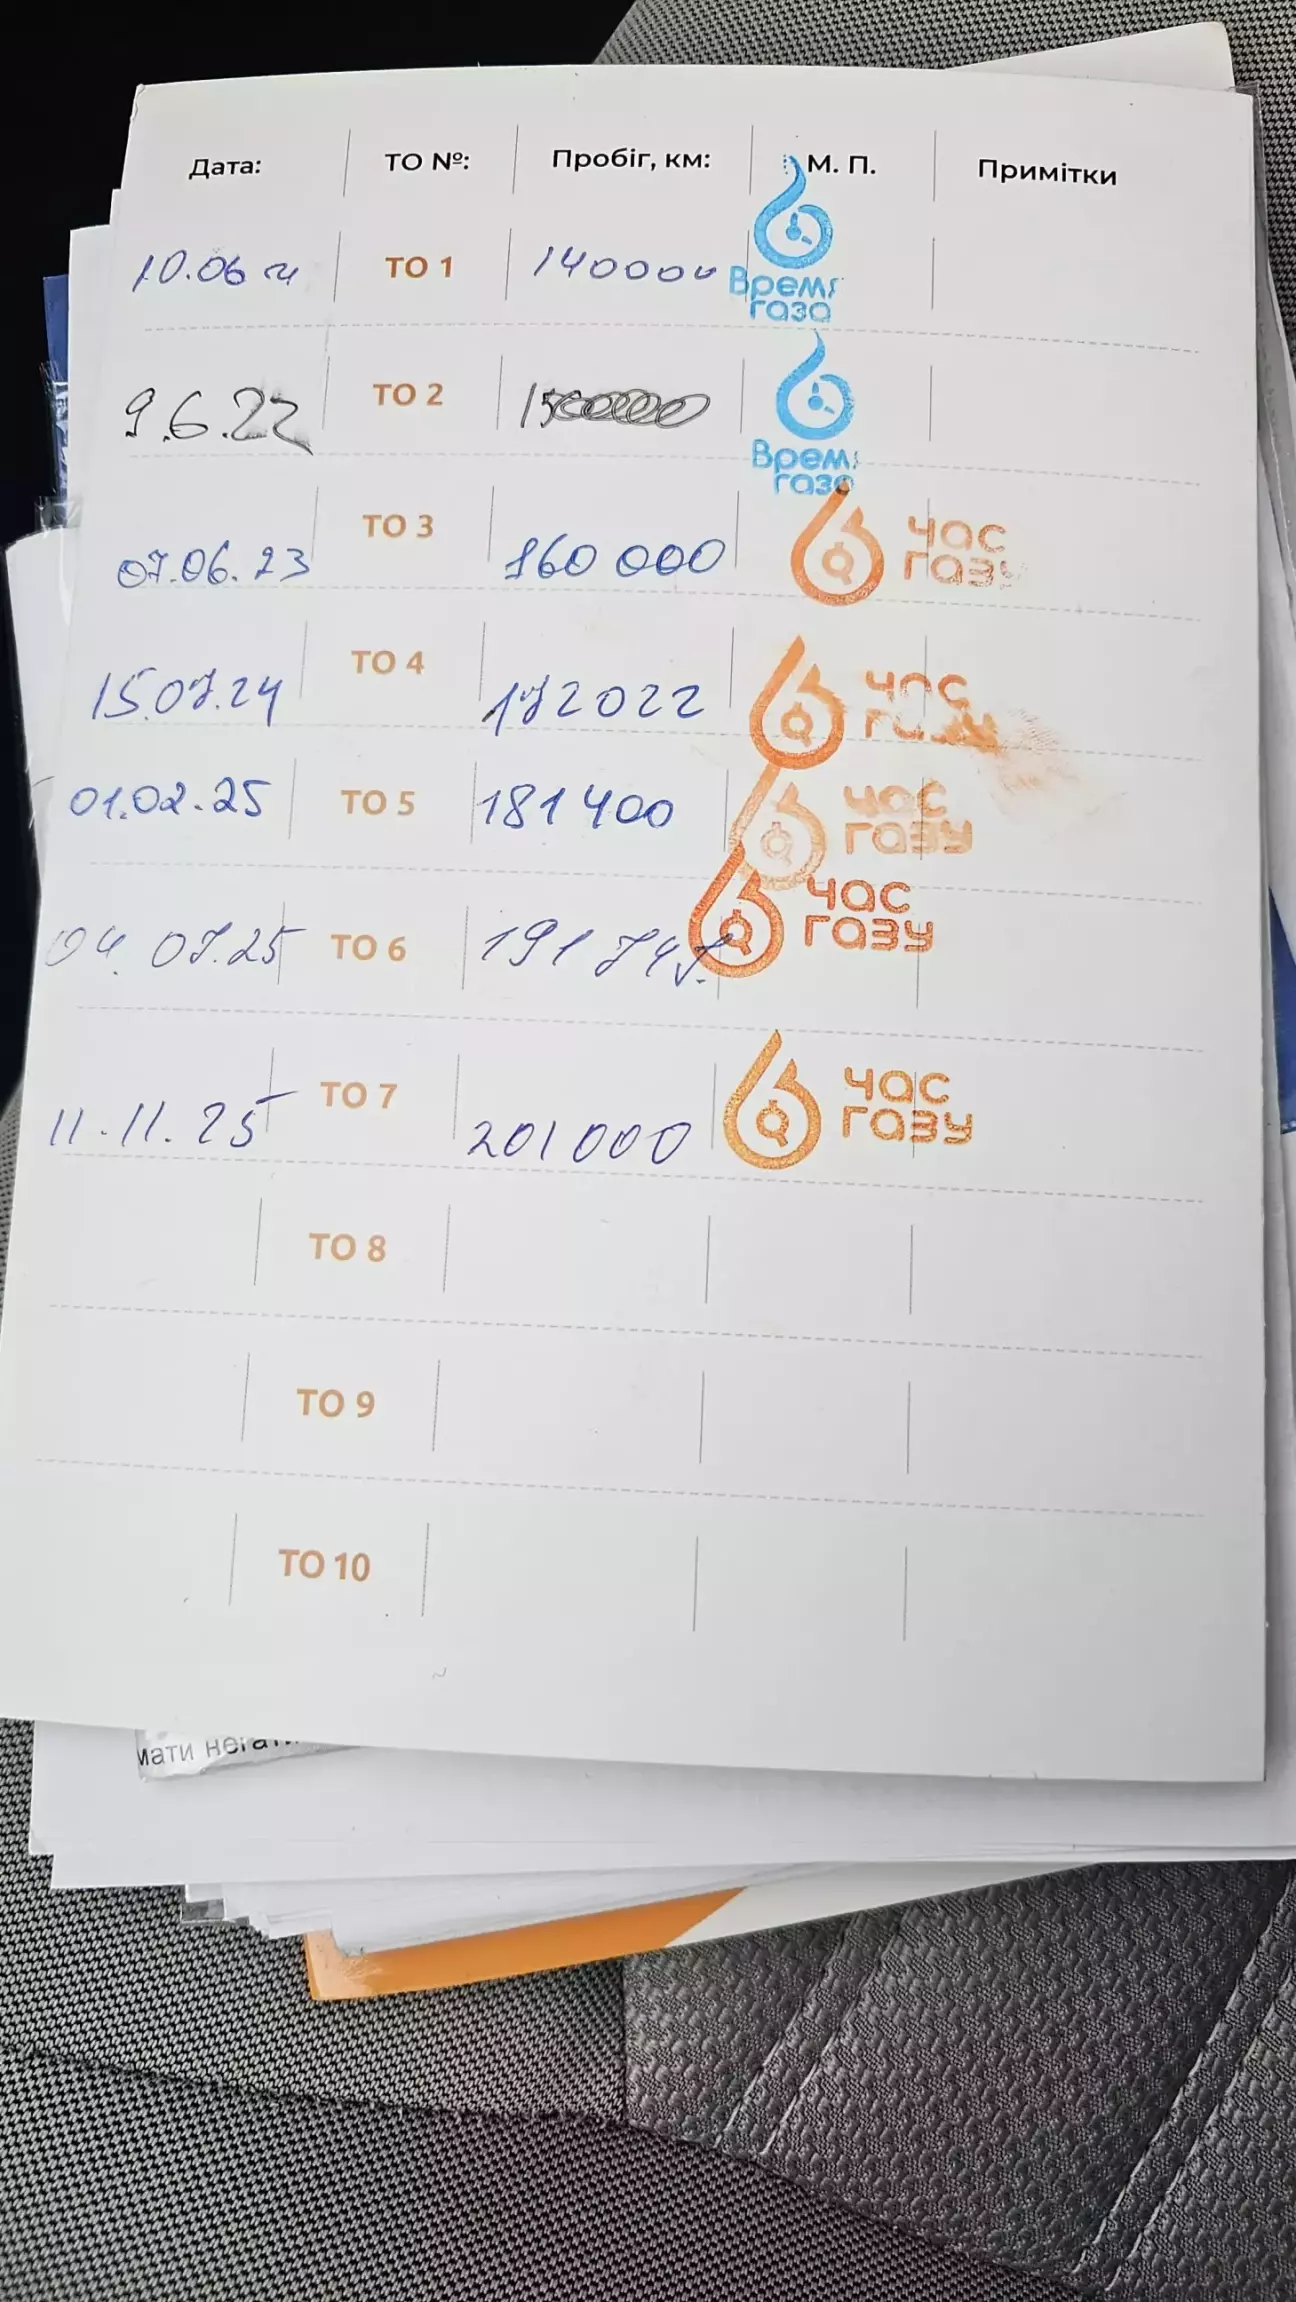 Дата: ТО №: Пробіг, км: М. П. Примітки
10.06 ТО 1 140000
Время газа
9.6.22 ТО 2
Время газа
07.06.23 ТО 3 160 000
час газу
15.07.24 ТО 4 172022
час газу
01.02.25 ТО 5 181400
час газу
04.07.25 ТО 6
час газу
11.11.25 ТО 7 201000
час газу
ТО 8
ТО 9
ТО 10
мати